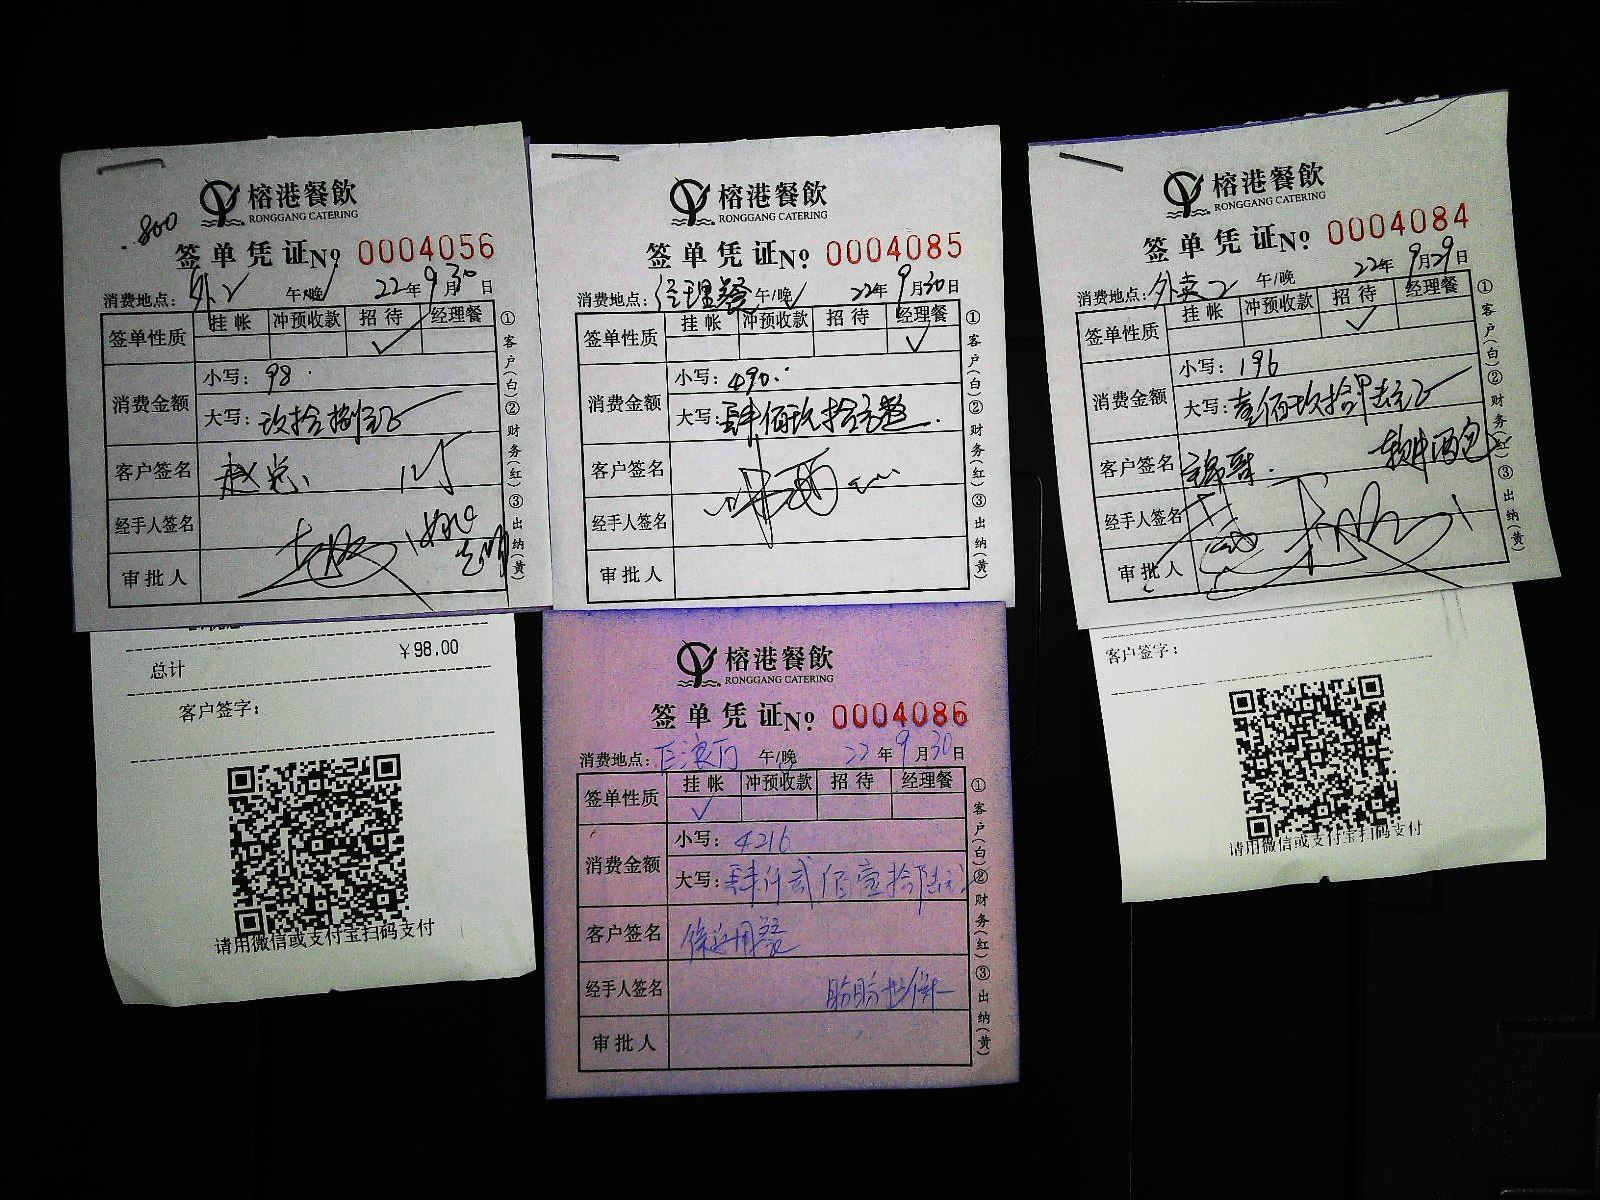 .800
榕港餐飲
RONGGANG CATERING
签单凭证No 0004056
消费地点：外2 午/晚 22年9月30日
签单性质 挂帐 冲预收款 招待 经理餐
消费金额
小写：98.
大写：玖拾捌元正
客户签名 赵总
经手人签名
审批人
①客户(白)②财务(红)③出纳(黄)
总计 ￥98.00
客户签字：
请用微信或支付宝扫码支付
榕港餐飲
RONGGANG CATERING
签单凭证No 0004085
消费地点：经理餐 午/晚 22年9月30日
签单性质 挂帐 冲预收款 招待 经理餐
消费金额
小写：490.
大写：肆佰玖拾元整.
客户签名
经手人签名
审批人
①客户(白)②财务(红)③出纳(黄)
榕港餐飲
RONGGANG CATERING
签单凭证No 0004084
消费地点：外卖2 午/晚 22年9月29日
签单性质 挂帐 冲预收款 招待 经理餐
消费金额
小写：196
大写：壹佰玖拾陆元正
客户签名
经手人签名
审批人
①客户(白)②财务(红)③出纳(黄)
客户签字：
请用微信或支付宝扫码支付
榕港餐飲
RONGGANG CATERING
签单凭证No 0004086
消费地点： 午/晚 22年9月30日
签单性质 挂帐 冲预收款 招待 经理餐
消费金额
小写：4216
大写：肆仟贰佰壹拾陆元
客户签名
经手人签名
审批人
①客户(白)②财务(红)③出纳(黄)